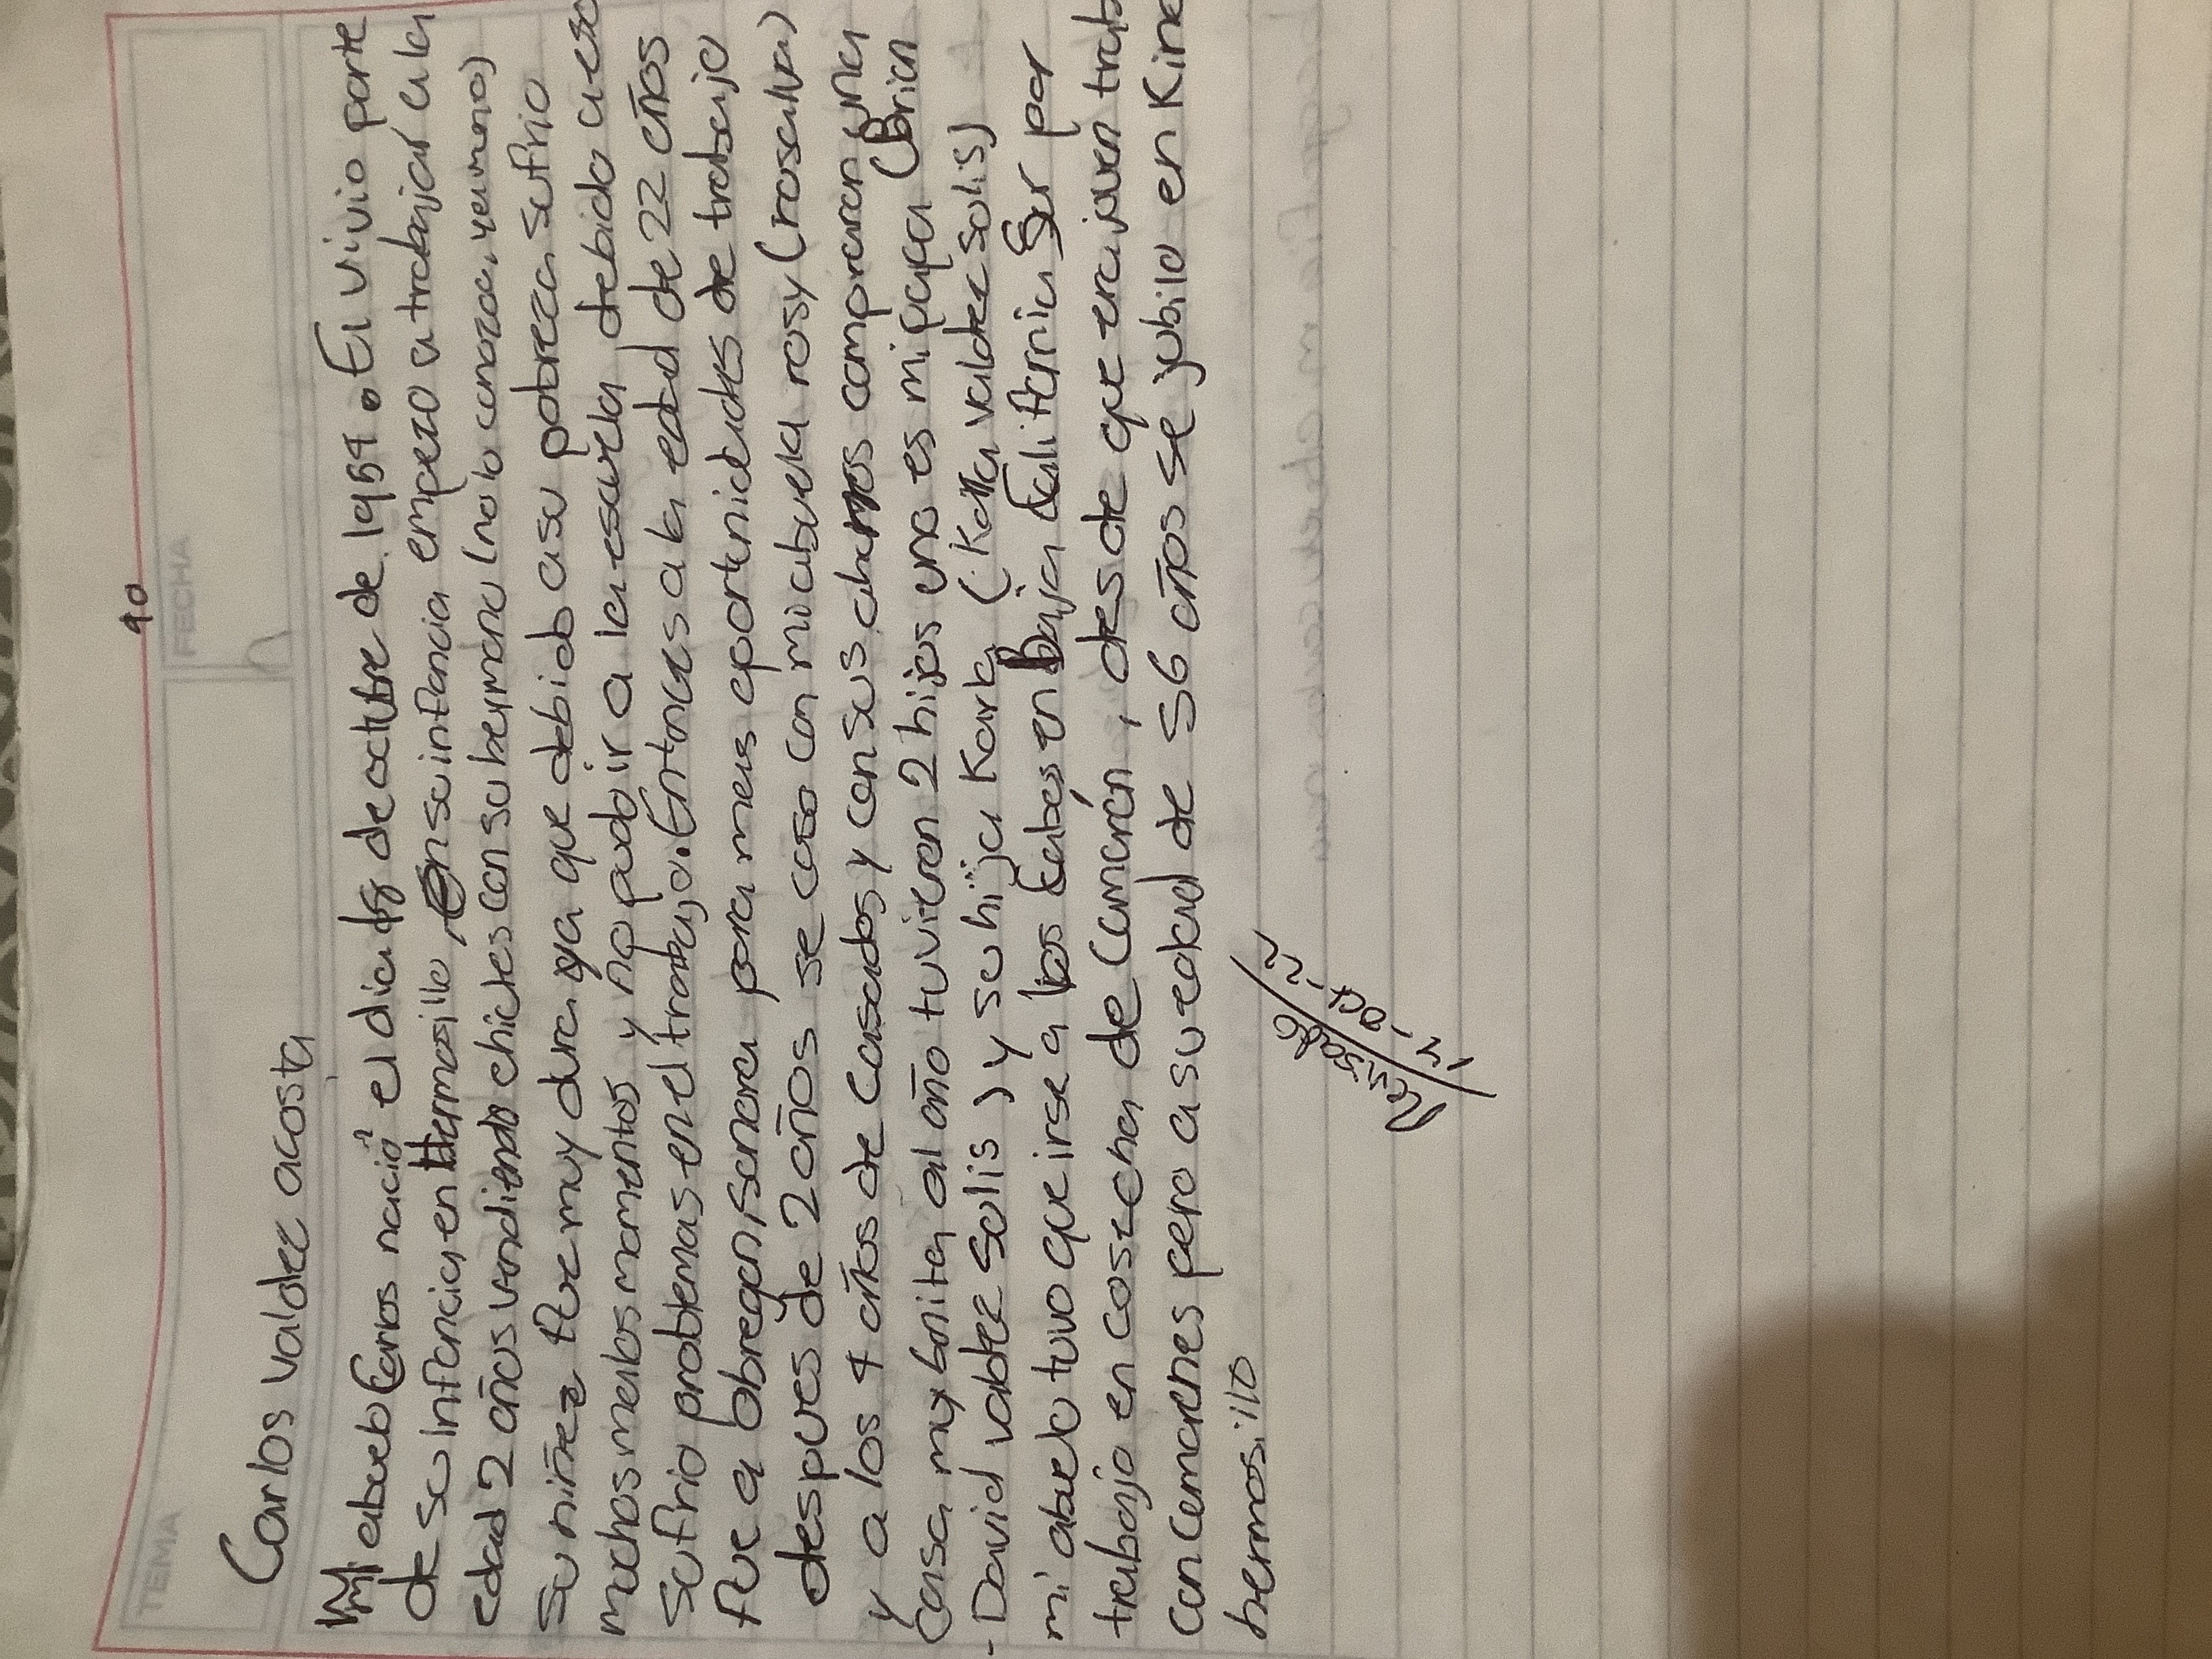 90
TEMA
FECHA
Carlos Valdez acosta
Mi abuelo Carlos nació el dia de octubre de 1954. El vivio parte
de su infancia, en Hermosillo, En su infancia empezo a trabajar a la
edad 2 años vendiendo chicles con su hermano (no lo conozca, yeururo)
su niñez fue muy dura ya que debido a su pobreza sufrio
muchos malos momentos y no pudo ir a la escuela debido a eso
sufrio problemas en el trabajo. Entonces a la edad de 22 años
fue a obregon, sonora para mas oportunidades de trabajo
despues de 2 años se caso con mi abuela rosy (rosalva)
y a los 4 años de Casados y con sus ahorros compraron una
Casa muy bonita al año tuvieron 2 hijos uno es mi papa (Brian
- David valdez Solis) y su hija Karla (Karla valdez solis)
mi abuelo tuvo que irse a los Cabos en Baja California Sur por
trabajo en cosecha de Camarón, desde que era joven trab
con Camarones pero a su edad de 56 años se jubilo en Kino
hermosillo